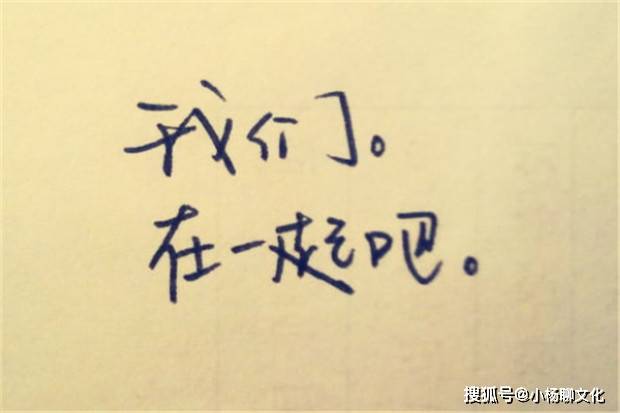 我们。
在一起吧。
搜狐号@小杨聊文化